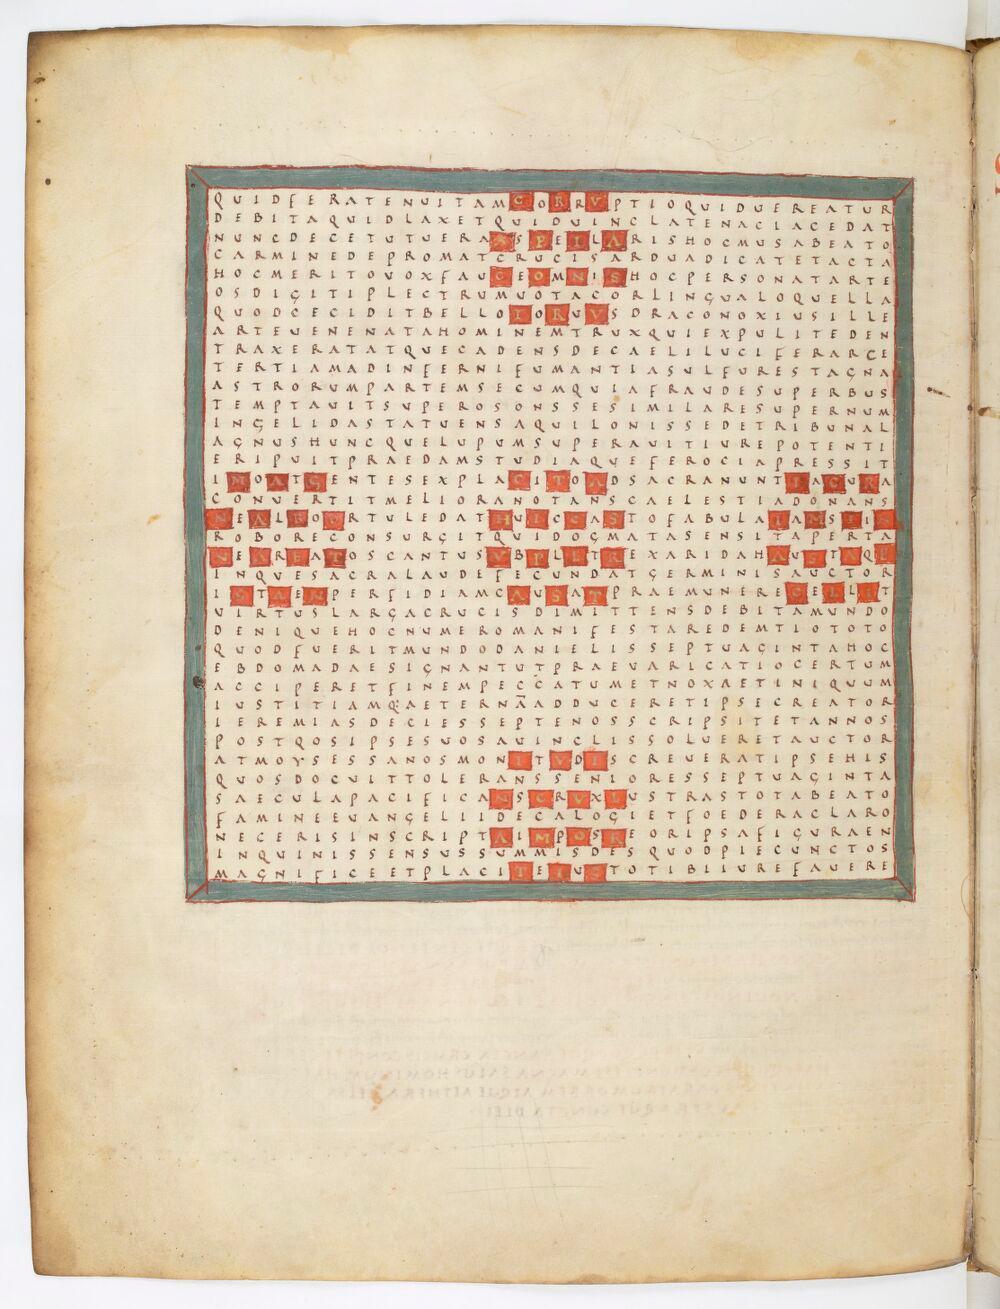 QUIDFERATENUITAMCORRVPTIOQUIDUEREATUR
DEBITAQUIDLAXETQUIDUINCLATENACIACEDAT
NUNCDECETUTUERASSPEILARISHOCMUSABEATO
CARMINEDEPROMATCRUCISARDUADICATETACTA
HOCMERITOUOXFAUCEOMNISHOCPERSONATARTE
OSDIGITIPLECTRUMUOTACORLINGUALOQUELLA
QUODCECIDITBELLOTORUVSDRACONOXIUSILLE
ARTEUENENATAHOMINEMTRUXQUIEXPULITEDEN
TRAXERATATQUECADENSDECAELILUCIFERARCE
TERTIAMADINFERNIFUMANTIASULFURESTAGNA
ASTRORUMPARTEMSECUMQUIAFRAUDESUPERBUS
TEMPTAUITSUPEROSONSSESIMILARESUPERNUM
INGELIDASTATUENSAQUILONISSEDETRIBUNAL
AGNUSHUNCQUELUPUMSUPERAUITIUREPOTENTI
ERIPUITPRAEDAMSTUDIAQUEFEROCIAPRESSIT
IMOATGENTESEXPLACITOADSACRANUNTIACURA
CONUERTITMELIORANOTANSCAELESTIADONANS
NEALBOORTULEDATHUICCASTOFABULAIAMSTIL
ROBORECONSURGITQUIDOGMATASENSITAPERTA
SEARBATOSCANTUSUBPLETREXARIDAHAUSTAQU
INQUESACRALAUDEFECUNDATGERMINISAUCTOR
ISTAENPERFIDIAMCAUSATPRAEMUNERECELLIT
VIRTUSLARGACRUCISDIMITTENSDEBITAMUNDO
DENIQUEHOCNUMEROMANIFESTAREDEMTIOTOTO
QUODFUERITMUNDODANIELISSEPTUAGINTAHOC
EBDOMADAESIGNANTUTPRAEUARICATIOCERTUM
ACCIPERETFINEMPECCATUMETNOXAETINIQUUM
IUSTITIAMQ:AETERNAADDUCERETIPSECREATOR
IEREMIASDECIESSEPTENOSSCRIPSITETANNOS
POSTQOSIPSESUOSAUINCLISSOLUERETAUCTOR
ATMOYSESSANOSMONITVDISCREUERATIPSEHIS
QUOSDOCUITTOLERANSSENIORESSEPTUAGINTA
SAECULAPACIFICANSCRVXLUSTRASTOTABEATO
FAMINEEUANGELIIDECALOGIETFOEDERACLARO
NECERISINSCRIPTAIMPOSREORIPSAFIGURAEN
INQUINISSENSUSSUMMISDESQUODPIECUNCTOS
MAGNIFICEETPLACITEIUSTOTIBLIUREFAUERE